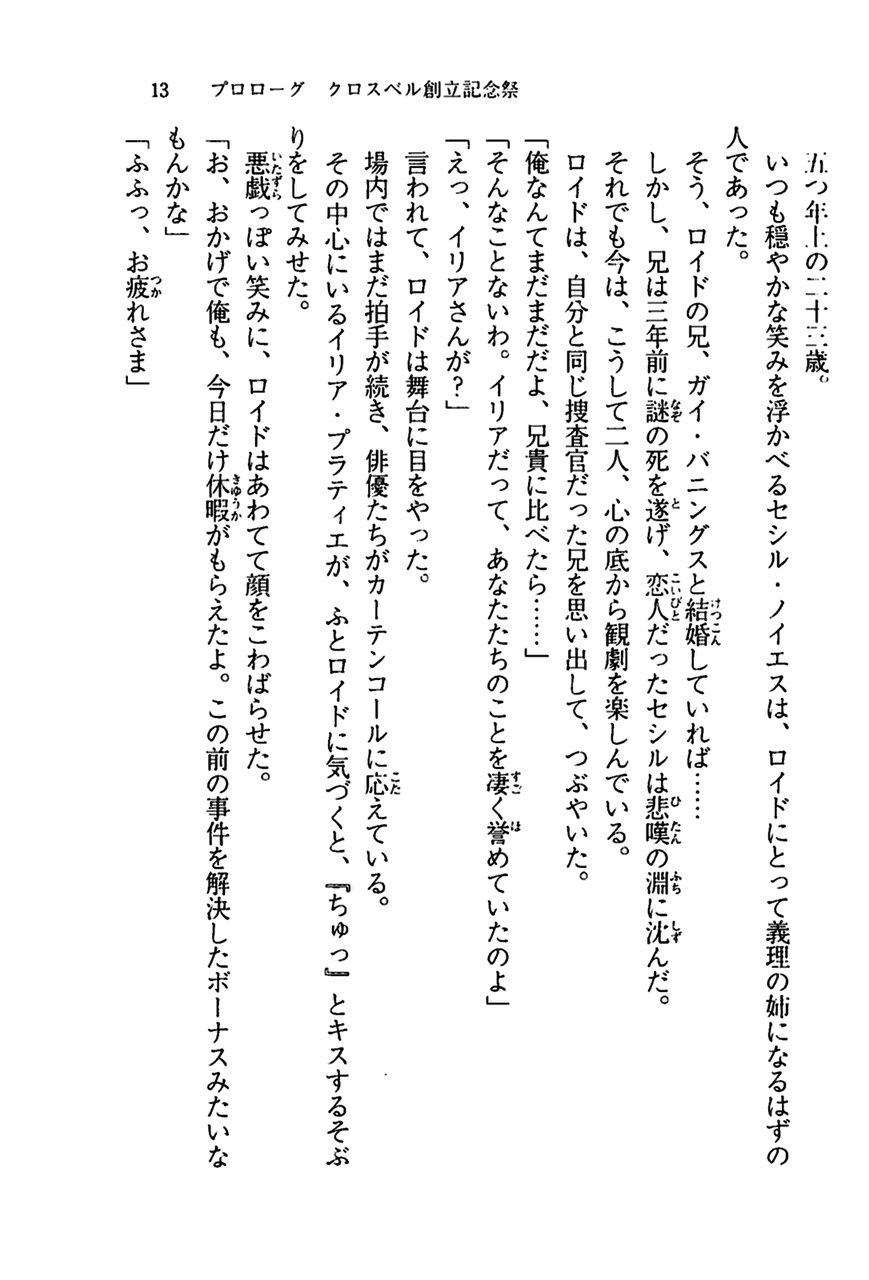 13　プロローグ　クロスベル創立記念祭
五つ年上の二十三歳。
いつも穏やかな笑みを浮かべるセシル・ノイエスは、ロイドにとって義理の姉になるはずの
人であった。
そう、ロイドの兄、ガイ・バニングスと結婚していれば……
しかし、兄は三年前に謎の死を遂げ、恋人だったセシルは悲嘆の淵に沈んだ。
それでも今は、こうして二人、心の底から観劇を楽しんでいる。
ロイドは、自分と同じ捜査官だった兄を思い出して、つぶやいた。
「俺なんてまだまだだよ、兄貴に比べたら……」
「そんなことないわ。イリアだって、あなたたちのことを凄く誉めていたのよ」
「えっ、イリアさんが？」
言われて、ロイドは舞台に目をやった。
場内ではまだ拍手が続き、俳優たちがカーテンコールに応えている。
その中心にいるイリア・プラティエが、ふとロイドに気づくと、『ちゅっ』とキスするそぶ
りをしてみせた。
悪戯っぽい笑みに、ロイドはあわてて顔をこわばらせた。
「お、おかげで俺も、今日だけ休暇がもらえたよ。この前の事件を解決したボーナスみたいな
もんかな」
「ふふっ、お疲れさま」